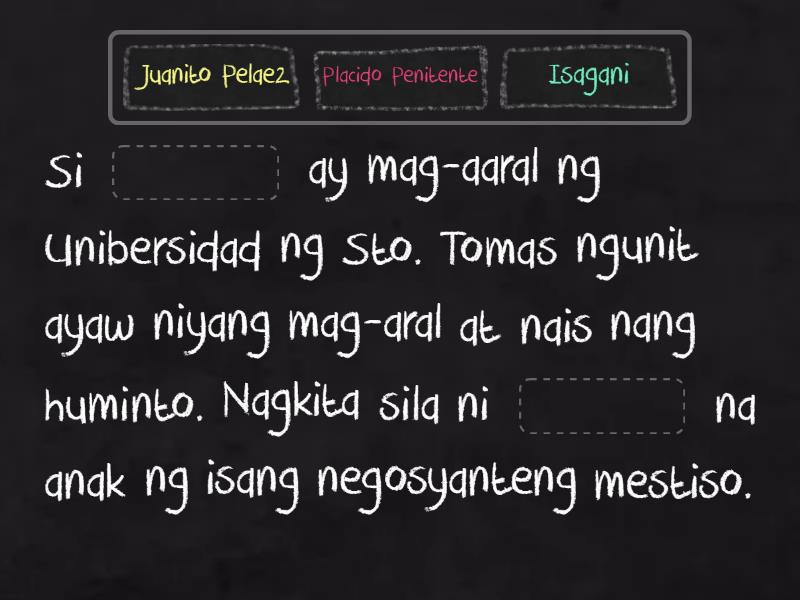 Juanito Pelaez Placido Penitente Isagani
Si ay mag-aaral ng
Unibersidad ng Sto. Tomas ngunit
ayaw niyang mag-aral at nais nang
huminto. Nagkita sila ni na
anak ng isang negosyanteng mestiso.